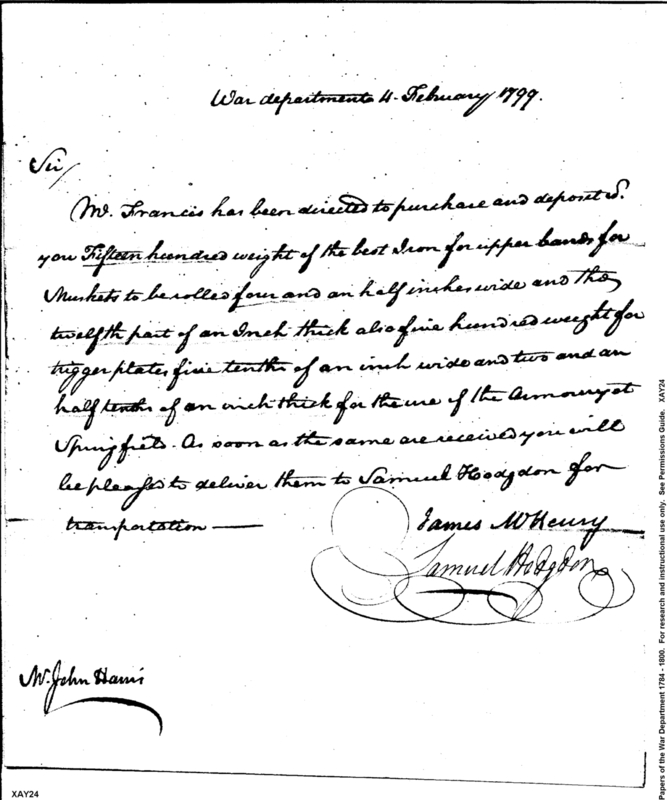 War department 4. February 1799.
Sir/
Mr. Francis has been directed to purchase and deposit
you Fifteen hundred weight of the best Iron for upper bands for
Muskets to be rolled four and an half inches wide and the
twelfth part of an Inch thick also five hundred weight for
trigger plates five tenths of an inch wide and two and an
half tenths of an inch thick for the use of the Armoury at
Springfield. As soon as the same are received you will
be pleased to deliver them to Samuel Hodgdon for
transportation —
James McHenry
Samuel Hodgdon
Mr. John Harris
XAY24
Papers of the War Department 1784 - 1800. For research and instructional use only. See Permissions Guide. XAY24